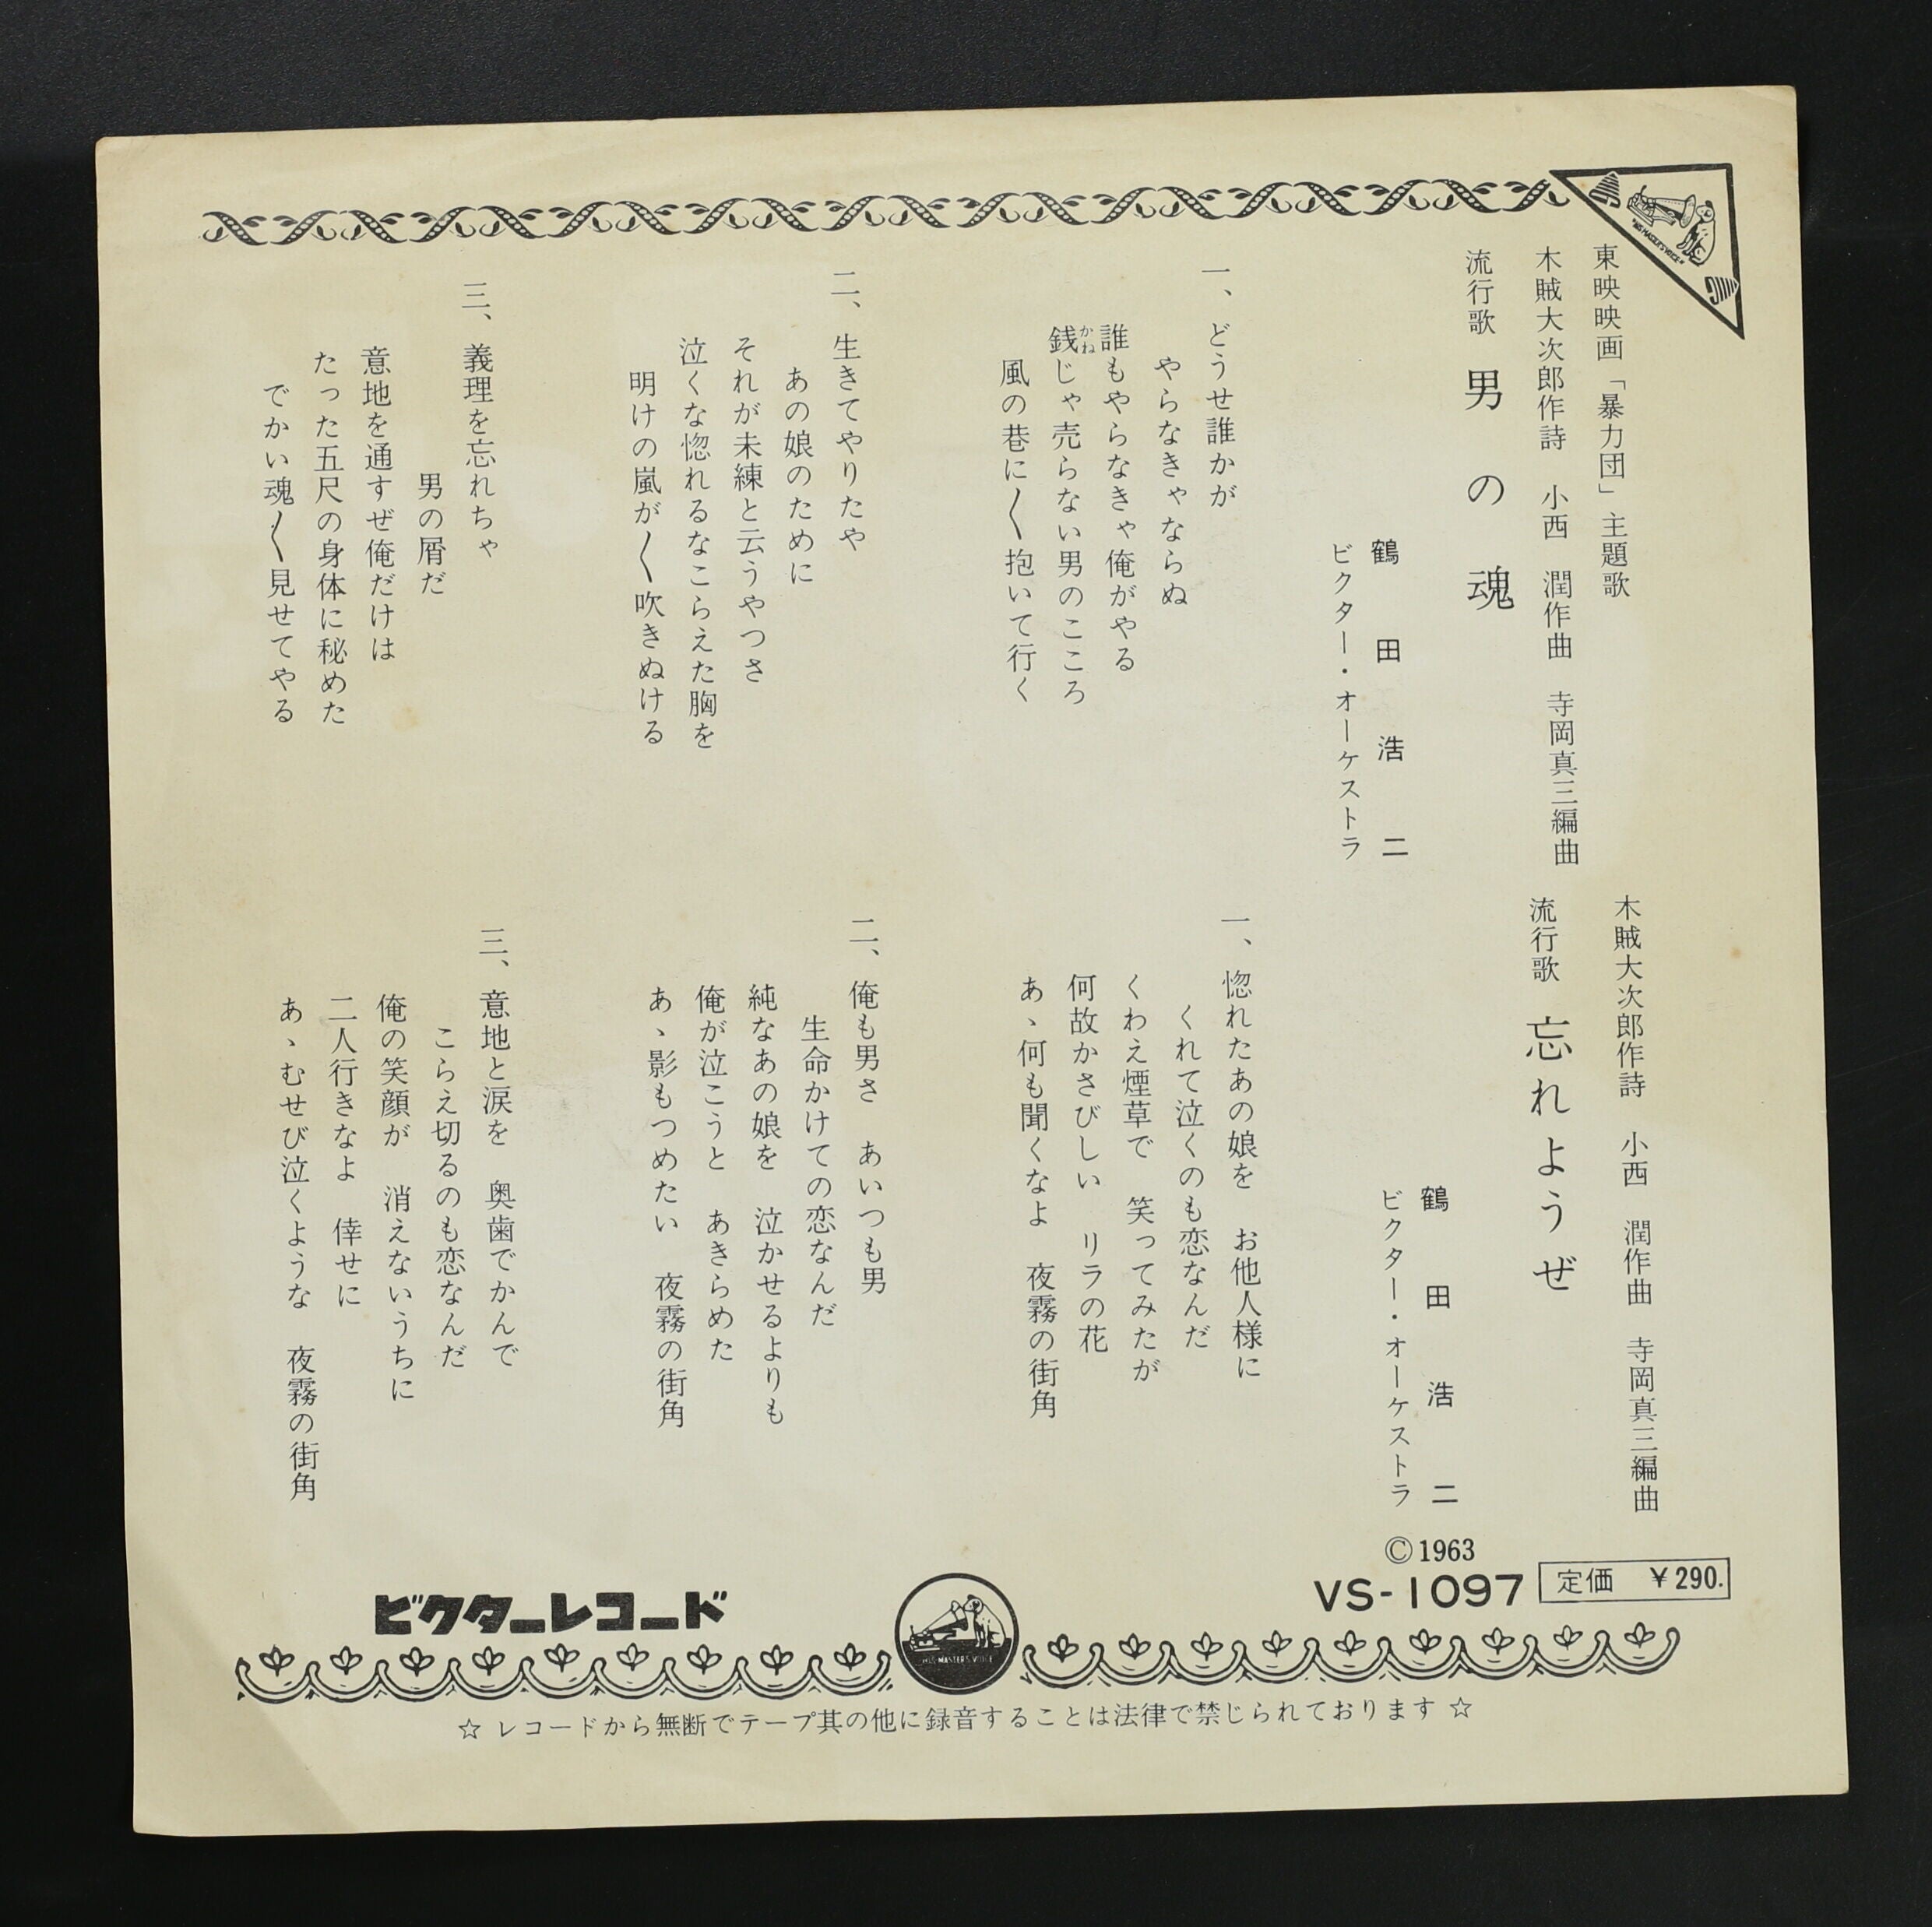 東映映画「暴力団」主題歌
木賊大次郎作詩　小西　潤作曲　寺岡真三編曲
流行歌　男の魂
鶴田浩二
ビクター・オーケストラ
一、どうせ誰かが
やらなきゃならぬ
誰もやらなきゃ俺がやる
銭じゃ売らない男のこころ
かね
風の巷に〱抱いて行く
二、生きてやりたや
あの娘のために
それが未練と云うやつさ
泣くな惚れるなこらえた胸を
明けの嵐が〱吹きぬける
三、義理を忘れちゃ
男の屑だ
意地を通すぜ俺だけは
たった五尺の身体に秘めた
でかい魂〱見せてやる
木賊大次郎作詩　小西　潤作曲　寺岡真三編曲
流行歌　忘れようぜ
鶴田浩二
ビクター・オーケストラ
一、惚れたあの娘を　お他人様に
くれて泣くのも恋なんだ
くわえ煙草で　笑ってみたが
何故かさびしい　リラの花
あゝ何も聞くなよ　夜霧の街角
二、俺も男さ　あいつも男
生命かけての恋なんだ
純なあの娘を　泣かせるよりも
俺が泣こうと　あきらめた
あゝ影もつめたい　夜霧の街角
三、意地と涙を　奥歯でかんで
こらえ切るのも恋なんだ
俺の笑顔が　消えないうちに
二人行きなよ　倖せに
あゝむせび泣くような　夜霧の街角
©1963
VS-1097　定価　￥290.
ビクターレコード
"HIS MASTER'S VOICE"
HIS MASTER'S VOICE
☆ レコードから無断でテープ其の他に録音することは法律で禁じられております ☆